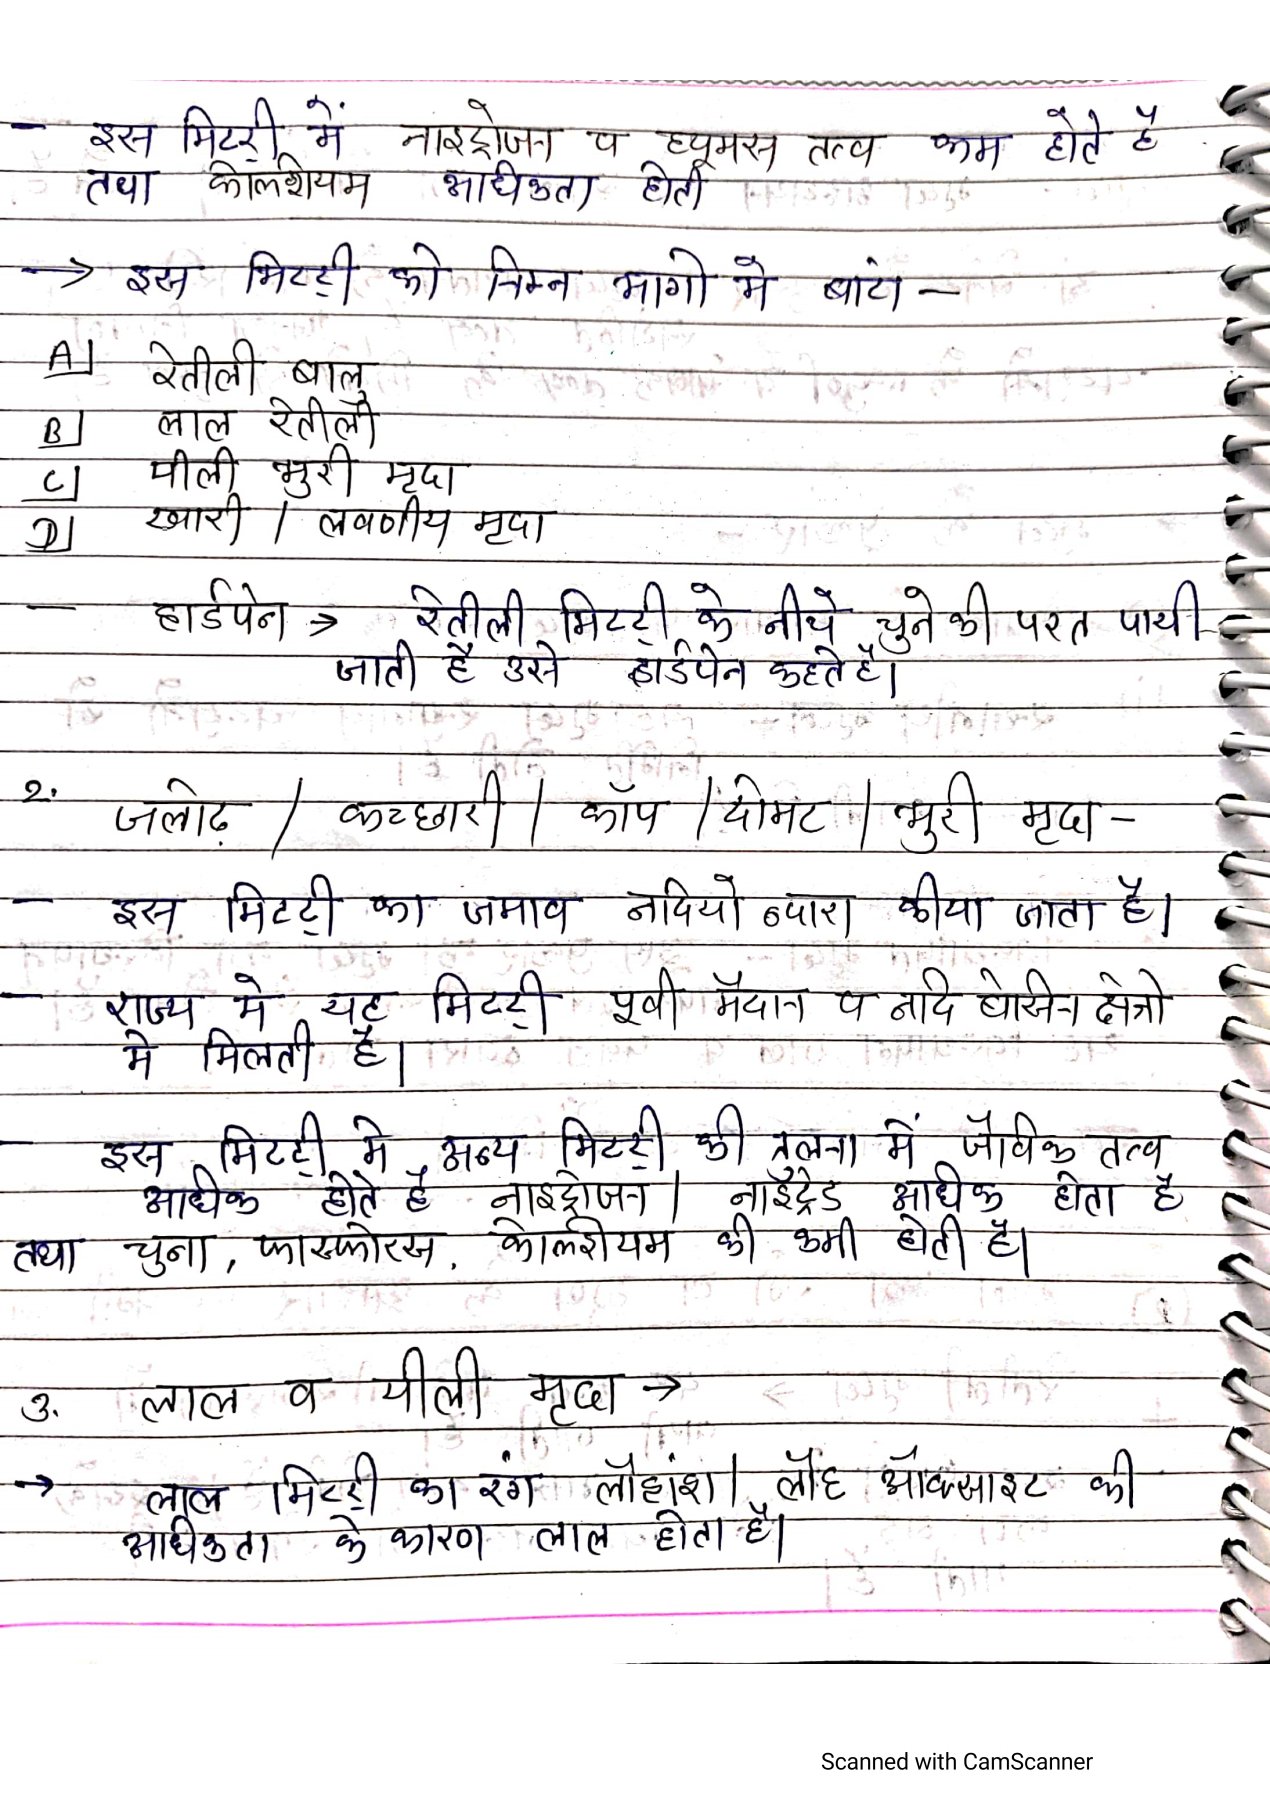 - इस मिटटी में नाइट्रोजन व ह्यूमस तत्व कम होते है
तथा केल्शियम आधिकता होती
→ इस मिटटी को निम्न भागो मे बांटा –
A] रेतीली बालु
B] लाल रेतीली
C] पीली भुरी मृदा
D] खारी / लवणीय मृदा
- हार्डपेन → रेतीली मिटटी के नीचे चुने की परत पायी
जाती है उसे हार्डपेन कहते है।
2. जलोढ़ / कच्छारी / कॉप / दोमट / भुरी मृदा –
- इस मिटटी का जमाव नदियो ब्दारा कीया जाता है।
- राज्य मे यह मिटटी पूर्वी मैदान व नदि बेसिन क्षेत्रो
मे मिलती है।
- इस मिटटी मे अन्य मिटटी की तुलना में जैविक तत्व
आधीक होते है नाइट्रोजन / नाईट्रेड आधीक होता है
तथा चुना, फास्फोरस, केल्शियम की कमी होती है।
3. लाल व पीली मृदा →
→ लाल मिटटी का रंग लौहांश / लौह ऑक्साइट की
आधीकता के कारण लाल होता है।
Scanned with CamScanner